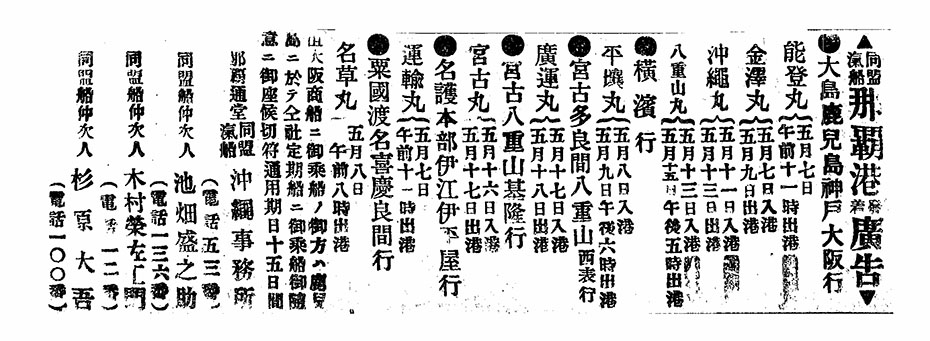 ▲同盟汽船那覇港発着廣告▼
●大島鹿兒島神戸大阪行
能登丸{五月七日午前十一時出港
金澤丸{五月七日入港五月九日出港
沖繩丸{五月十一日入港五月十三日出港
八重山丸{五月十三日入港五月十五日午後五時出港
●横濱行
平壤丸{五月八日入港五月九日午後六時出港
●宮古多良間八重山西表行
廣運丸{五月十七日入港五月十八日出港
●宮古八重山基隆行
宮古丸{五月十六日入港五月十七日出港
●名護本部伊江伊平屋行
運輸丸{五月七日午前十一時出港
●粟國渡名喜慶良間行
名草丸 五月八日午前八時出港
大阪商船ニ御乘船ノ御方ハ鹿兒
島ニ於テ仝社定期船ニ御乘船御隨
意ニ御座候切符通用期日十五日間
那覇通堂同盟汽船 沖繩事務所
(電話五三番)
同盟船仲次人 池畑盛之助
(電話一三六番)
同盟船仲次人 木村榮左衛門
(電話一二番)
同盟船仲次人 杉原大吾
(電話一〇〇番)